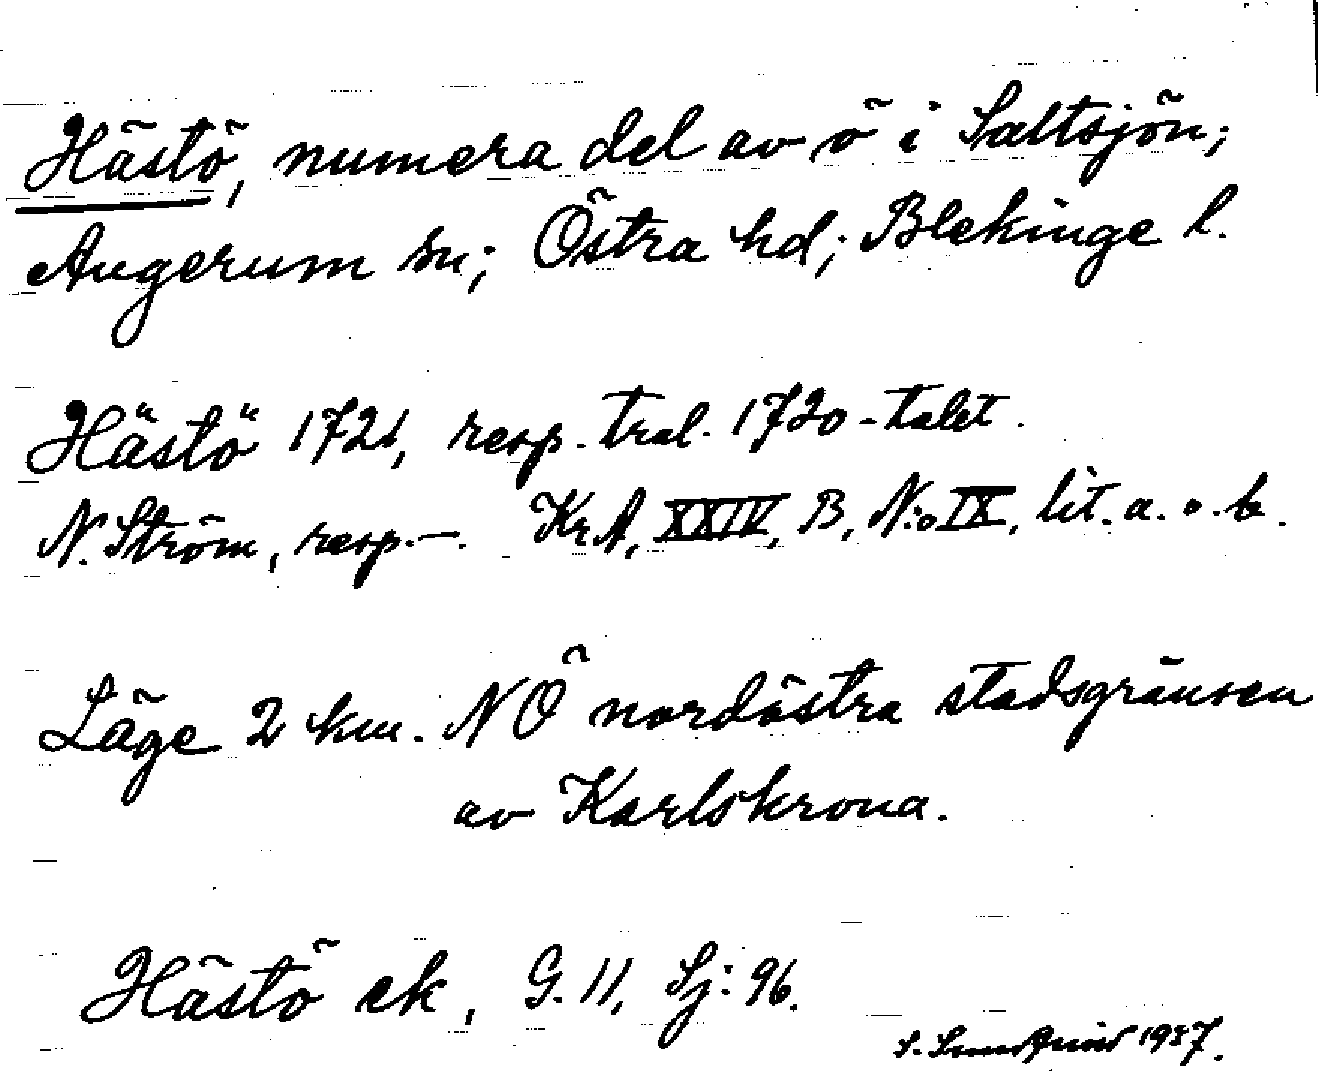 Hästö, numera del av ö i Saltsjön;
Augerum sn; Östra hd; Blekinge l.
Hästö 1721, resp. tral. 1720-talet.
N. Ström, resp. —. Kr.A, XXIV, B, N:o IX, lit. a. o. b.
Läge 2 km. NÖ nordöstra stadsgränsen
av Karlskrona.
Hästö ek, G. 11, Sj: 96.
1937.